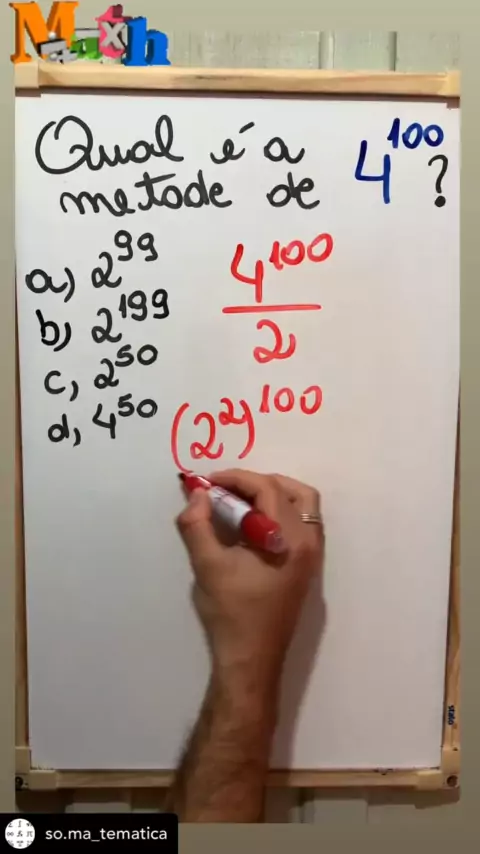 Math
Qual é a
metade de 4^100 ?
a) 2^99
b) 2^199
c) 2^50
d) 4^50
4^100
2
(2^2)^100
stalo
so.ma_tematica